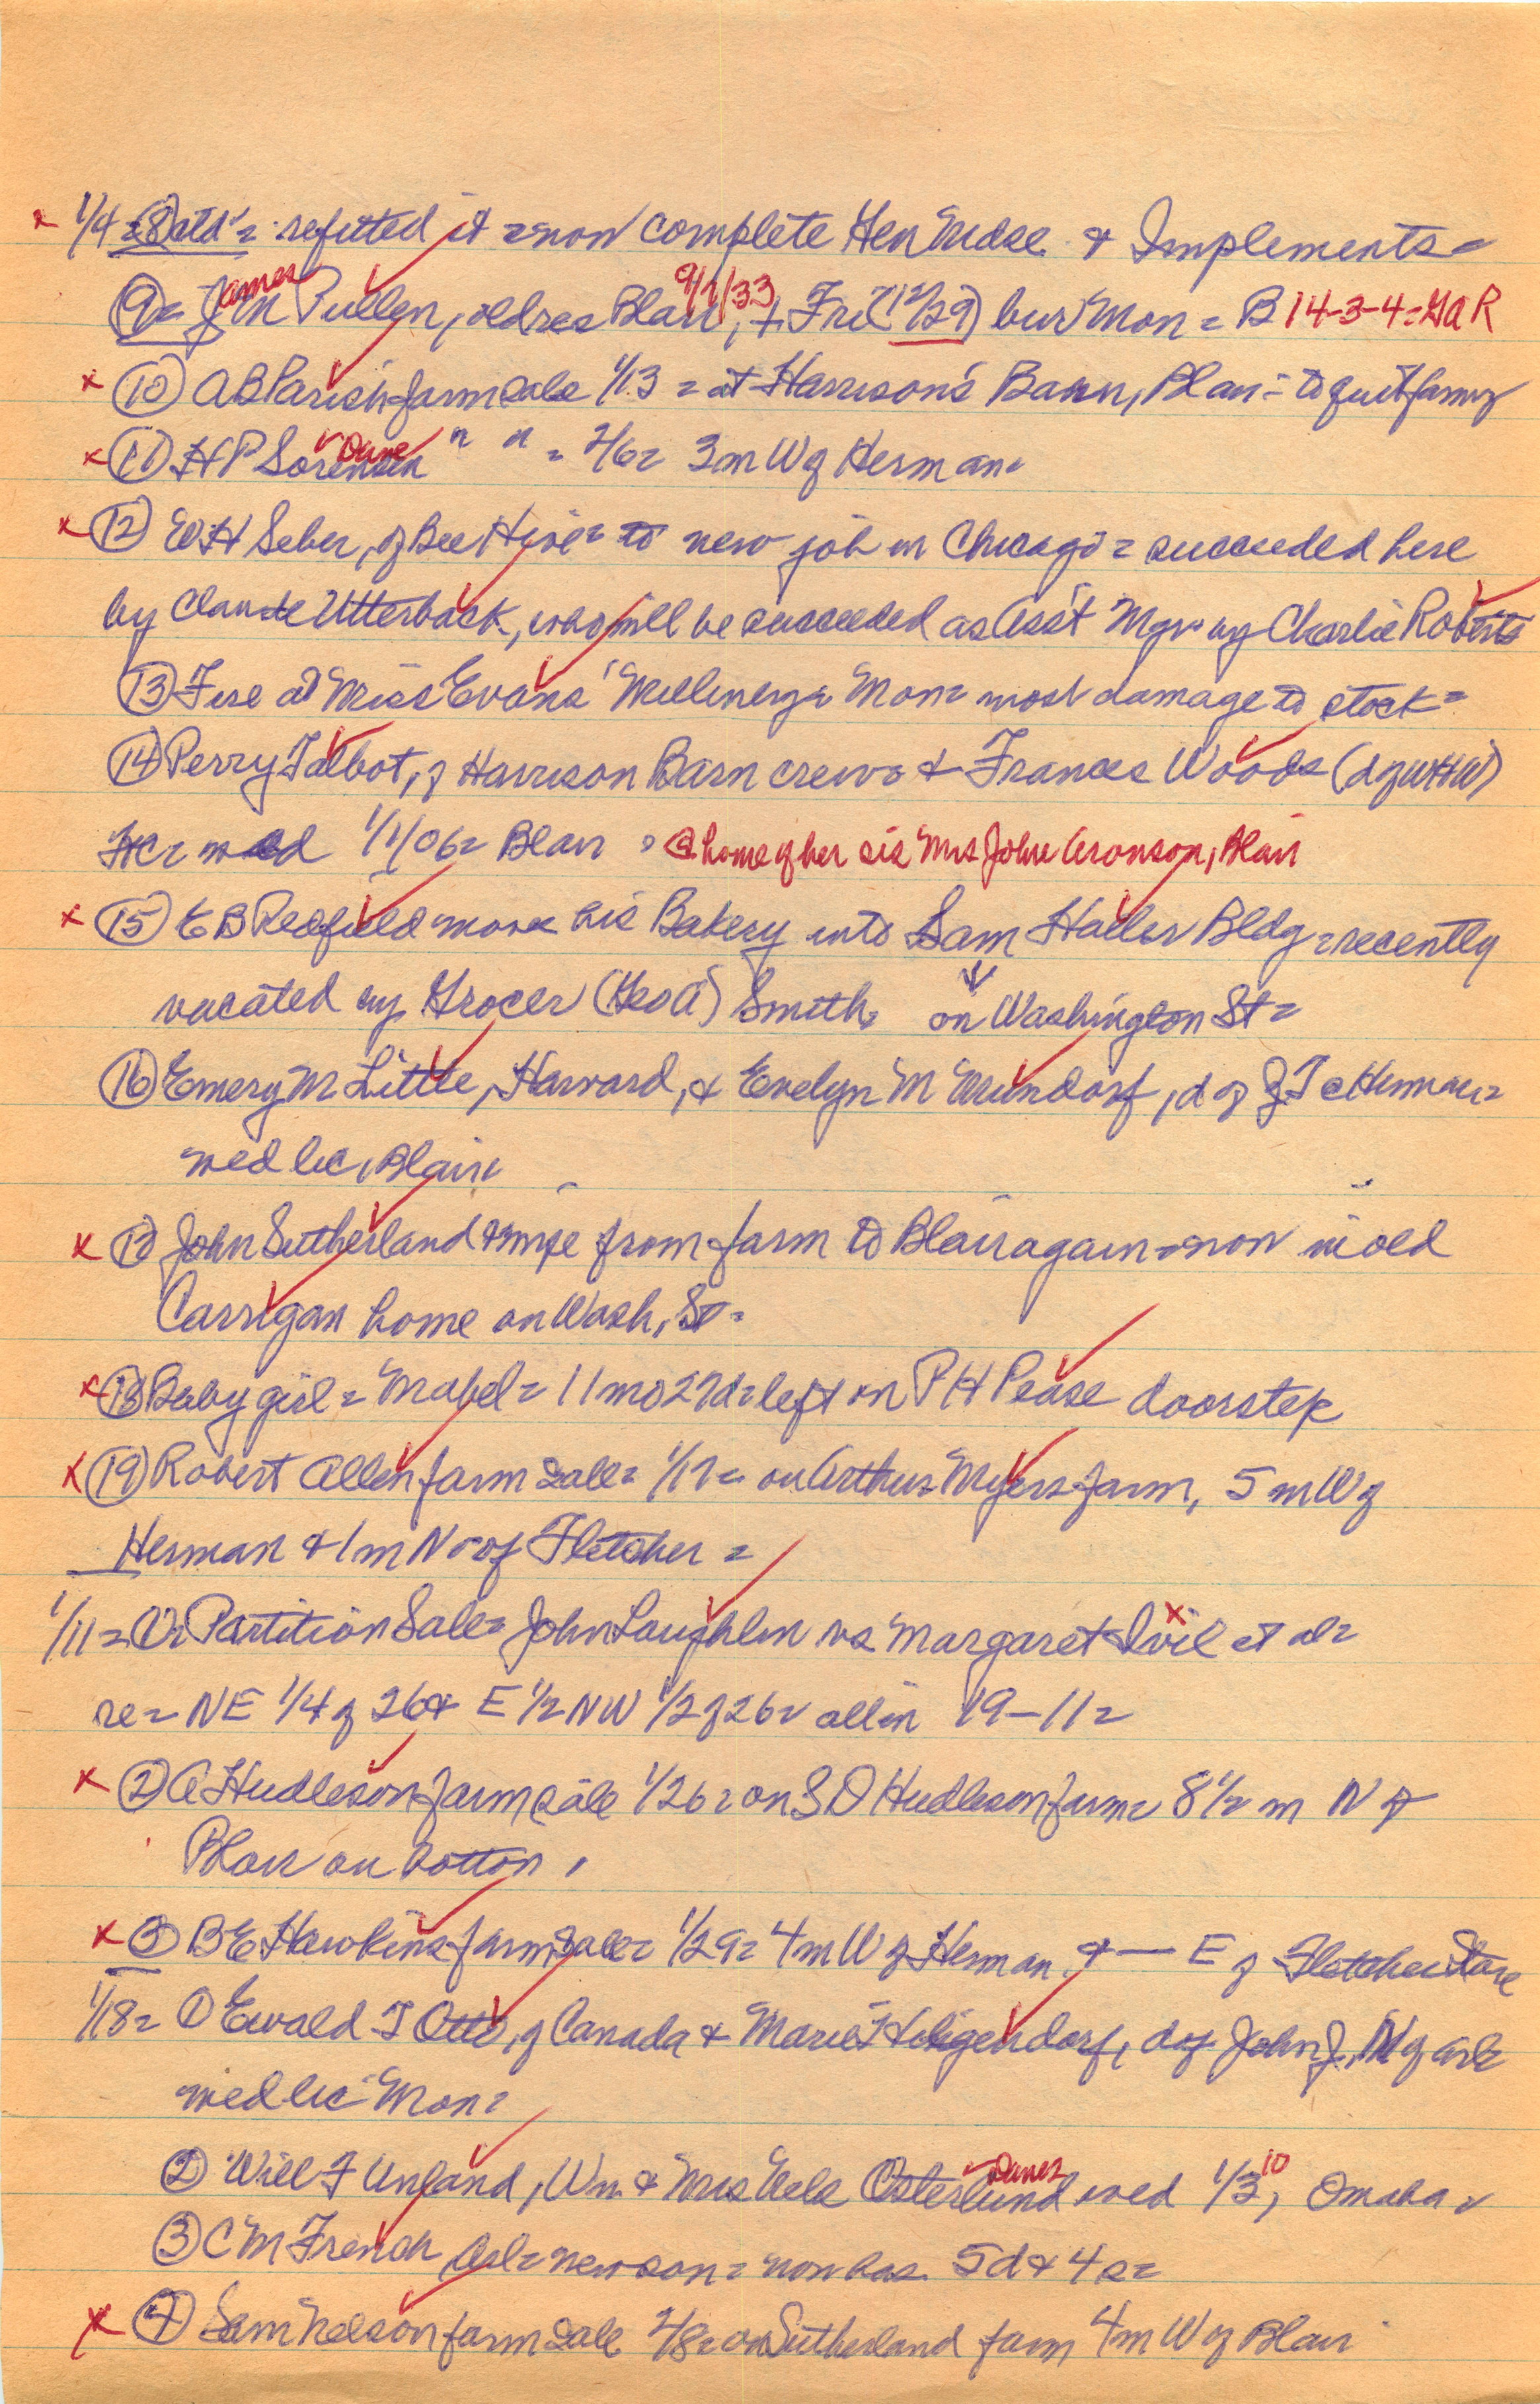 1/4 = (8) ctd = refitted it = now complete Gen Mdse & Implements =
(9) = James M Pullen, old res Blair, 9/1/33, + Fri (12/29) bur Mon = B 14-3-4 = GAR
x (10) A B Parish farm sale 1/13 = at Harrison's Barn, Blair = to quit farmg
x (11) H P Sorensen Dane " " = 2/6 = 3 m W of Herman =
x (12) W H Seber, of Bee Hive = to new job in Chicago = succeeded here
by Claude Utterback, who will be succeeded as Ass't Mgr by Charlie Roberts
(13) Fire at Miss Evans' Millinery = Mon = most damage to stock =
(14) Perry Talbot, of Harrison Barn crew = & Frances Woods (d of W H W)
Her wed 1/1/06 = Blair = @ home of her sis Mrs John Aronson, Blair
x (15) E B Redfield move his Bakery into Sam Haller Bldg = recently
vacated by Grocer (Geo A) Smith, on Washington St =
(16) Emery M Little, Harvard, & Evelyn M Mundorf, d of J T @ Herman =
wed lic, Blair,
x (17) John Sutherland & wife from farm to Blair again = now in old
Carrigan home on Wash, St =
x (18) Baby girl = Mabel = 11 mo 27d = left on P H Pease doorstep
x (19) Robert Allen farm sale = 1/17 = on Arthur Myers farm, 5 m W of
Herman & 1 m No of Fletcher =
1/11 = (1) = Partition Sale = John Laughlin vs Margaret Ivil et al =
re = NE 1/4 of 26 & E 1/2 NW 1/2 of 26 = all in 19-11 =
x (2) A Hudleson farm sale 1/26 = on S D Hudleson farm = 8 1/2 m N of
Blair on bottom,
x (3) B E Hawkins farm sale = 1/29 = 4 m W of Herman, & — E of Fletcher Store
1/18 = (1) Ewald T Otto, of Canada & Marie H Hilgendorf, d of John J, N of Arl =
wed lic Mon =
(2) Will F Unland, Wn & Mrs Osterlund Danes wed 1/3, 10 Omaha =
(3) C M French, Arl = new son = now has 5 d & 4 s =
x (4) Sam Nelson farm sale 2/8 = on Sutherland farm 4 m W of Blair